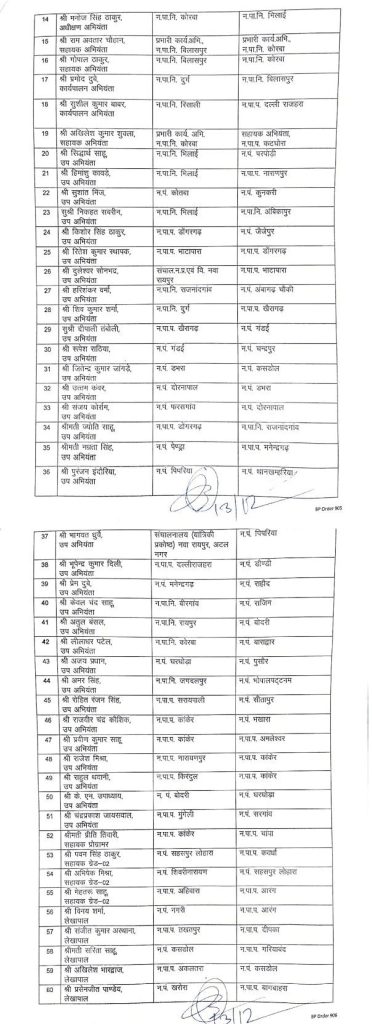 14 श्री मनोज सिंह ठाकुर, न.पा.नि. कोरबा न.पा.नि. भिलाई
अधीक्षण अभियंता
15 श्री राम अवतार चौहान, प्रभारी कार्य.अभि., प्रभारी कार्य.अभि.,
सहायक अभियंता न.पा.नि. बिलासपुर न.पा.नि. कोरबा
16 श्री गोपाल ठाकुर, न.पा.नि. बिलासपुर न.पा.नि. कोरबा
सहायक अभियंता
17 श्री प्रमोद दुबे, न.पा.नि. दुर्ग न.पा.नि. बिलासपुर
कार्यपालन अभियंता
18 श्री सुशील कुमार बाबर, न.पा.नि. रिसाली न.पा.प. दल्ली राजहरा
कार्यपालन अभियंता
19 श्री अखिलेश कुमार शुक्ला, प्रभारी कार्य. अभि. सहायक अभियंता,
सहायक अभियंता न.पा.नि. कोरबा न.पा.प. कटघोरा
20 श्री सिद्धार्थ साहू, न.पा.नि. भिलाई न.पं. घरघोड़ी
उप अभियंता
21 श्री हिमांशु कावड़े, न.पा.नि. भिलाई न.पा.प. नारायणपुर
उप अभियंता
22 श्री सुशांत मिंज, न.पं. कोतबा न.पं. कुनकुरी
उप अभियंता
23 सुश्री निकहत सबरीन, न.पा.नि. भिलाई न.पा.नि. अंबिकापुर
उप अभियंता
24 श्री किशोर सिंह ठाकुर, न.पा.प. डोंगरगढ़ न.पं. जैजेपुर
उप अभियंता
25 श्री रितेश कुमार स्थापक, न.पा.प. भाटापारा न.पा.प. डोंगरगढ़
उप अभियंता
26 श्री दुलेश्वर सोनभद्र, संचाल.न.प्र.एवं वि. नवा न.पा.प. भाटापारा
उप अभियंता रायपुर
27 श्री हरिशंकर वर्मा, न.पा.नि. राजनांदगांव न.पं. अंबागढ़ चौकी
उप अभियंता
28 श्री शिव कुमार शर्मा, न.पा.नि. दुर्ग न.पा.प. खैरागढ़
उप अभियंता
29 सुश्री दीपाली तंबोली, न.पा.प. खैरागढ़ न.पं. गंडई
उप अभियंता
30 श्री रूपेश राठिया, न.पं. गंडई न.पं. चन्द्रपुर
उप अभियंता
31 श्री जितेन्द्र कुमार जांगड़े, न.पं. डभरा न.पं. कसडोल
उप अभियंता
32 श्री उत्तम कंवर, न.पं. दोरनापाल न.पं. डभरा
उप अभियंता
33 श्री संजय कोर्राम, न.पं. फरसगांव न.पं. दोरनापाल
उप अभियंता
34 श्रीमती ज्योति साहू, न.पा.प. डोंगरगढ़ न.पा.नि. राजनांदगांव
उप अभियंता
35 श्रीमती नम्रता सिंह, न.पं. पेण्ड्रा न.पा.प. मनेन्द्रगढ़
उप अभियंता
36 श्री पुरंजन इंदोरिया, न.पं. पिपरिया न.पं. थानखम्हरिया
उप अभियंता
13/12
BP Order 905
37 श्री भागवत धुर्वे, संचालनालय (यांत्रिकी न.पं. पिपरिया
उप अभियंता प्रकोष्ठ) नवा रायपुर, अटल
नगर
38 श्री भूपेन्द्र कुमार दिल्ली, न.पा.प. दल्लीराजहरा न.पं. डौण्डी
उप अभियंता
39 श्री प्रेम दुबे, न.पं. मनेन्द्रगढ़ न.पं.
उप अभियंता
40 श्री केवल चंद साहू, न.पा.नि. बीरगांव न.पं. राजिम
उप अभियंता
41 श्री अतुल बंसल, न.पा.नि. रायपुर न.पं. बोदरी
उप अभियंता
42 श्री लीलाधर पटेल, न.पा.नि. कोरबा न.पं. बाराद्वार
उप अभियंता
43 श्री अजय प्रधान, न.पं. घरघोड़ा न.पं. पुसौर
उप अभियंता
44 श्री अमर सिंह, न.पा.नि. जगदलपुर न.पं. भोपालपट्टनम
उप अभियंता
45 श्री रोहित रंजन सिंह, न.पा.प. सरायपाली न.पं. सीतापुर
उप अभियंता
46 श्री राजवीर चंद्र कौशिक, न.पा.प. कांकेर न.पं. भखारा
उप अभियंता
47 श्री प्रवीण कुमार साहू, न.पा.प. कांकेर न.पा.प. अमलेश्वर
उप अभियंता
48 श्री राजेश मिश्रा, न.पा.प. नारायणपुर न.पा.प. कांकेर
उप अभियंता
49 श्री राहुल थवानी, न.पा.प. किरंदुल न.पा.प. कांकेर
उप अभियंता
50 श्री के. एन. उपाध्याय, न. पं. बोदरी न.पं. घरघोड़ा
उप अभियंता
51 श्री चंद्रप्रकाश जायसवाल, न.पा.प. मुंगेली न.पं. सरगांव
उप अभियंता
52 श्रीमती प्रीति तिवारी, न.पा.प. कांकेर न.पा.प. चांपा
सहायक प्रोग्रामर
53 श्री पवन सिंह ठाकुर, न.पं. सहसपुर लोहारा न.पा.प. कवर्धा
सहायक ग्रेड-02
54 श्री अभिषेक मिश्रा, न.पं. शिवरीनारायण न.पं. सहसपुर लोहारा
सहायक ग्रेड-02
55 श्री मेहतरू साहू, न.पा.प. अहिवारा न.पा.प. आरंग
सहायक ग्रेड-02
56 श्री विनय शर्मा, न.पं. नगरी न.पा.प. आरंग
लेखापाल
57 श्री संजीत कुमार अस्थाना, न.पा.प. तखतपुर न.पा.प. दीपका
लेखापाल
58 श्रीमती सरिता साहू, न.पं. कसडोल न.पा.प. गरियाबंद
लेखापाल
59 श्री अखिलेश भारद्वाज, न.पा.प. अकलतरा न.पं. कसडोल
लेखापाल
60 श्री प्रसेनजीत पाण्डेय, न.पं. खरोरा न.पा.प. बागबाहरा
लेखापाल
13/12
BP Order 906